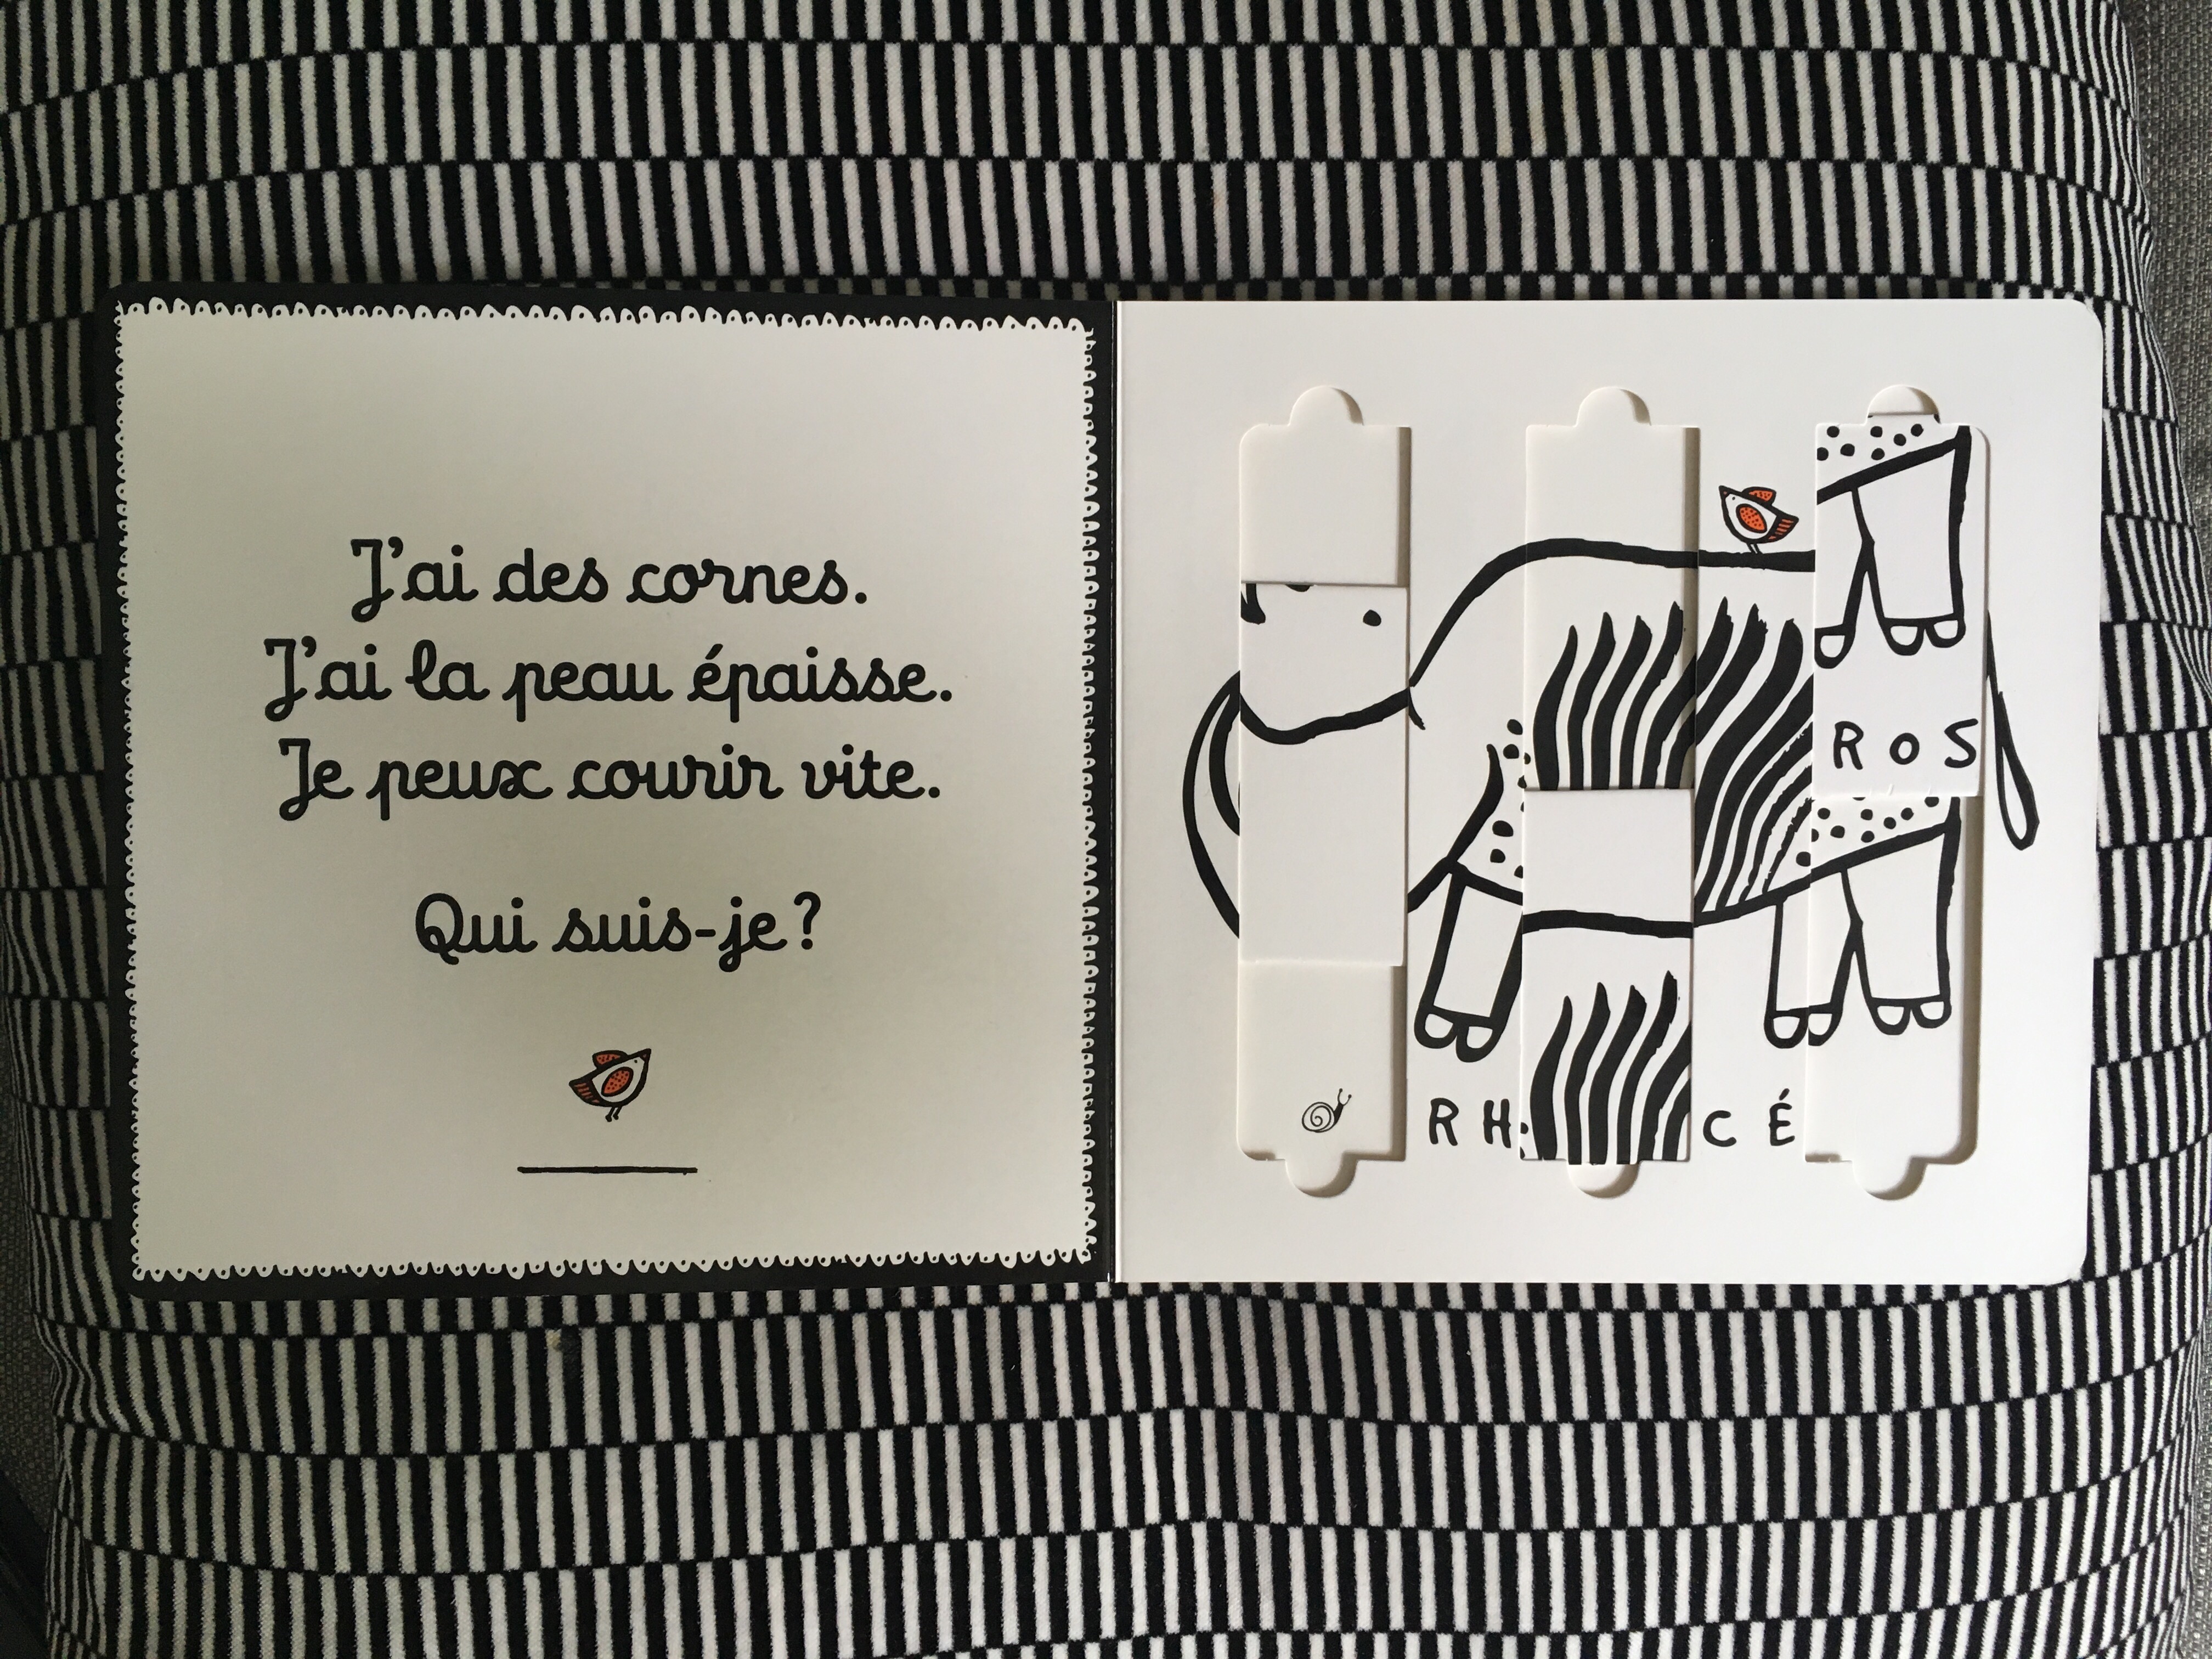 J'ai des cornes.
J'ai la peau épaisse.
Je peux courir vite.
Qui suis-je ?
ROS
RH CÉ